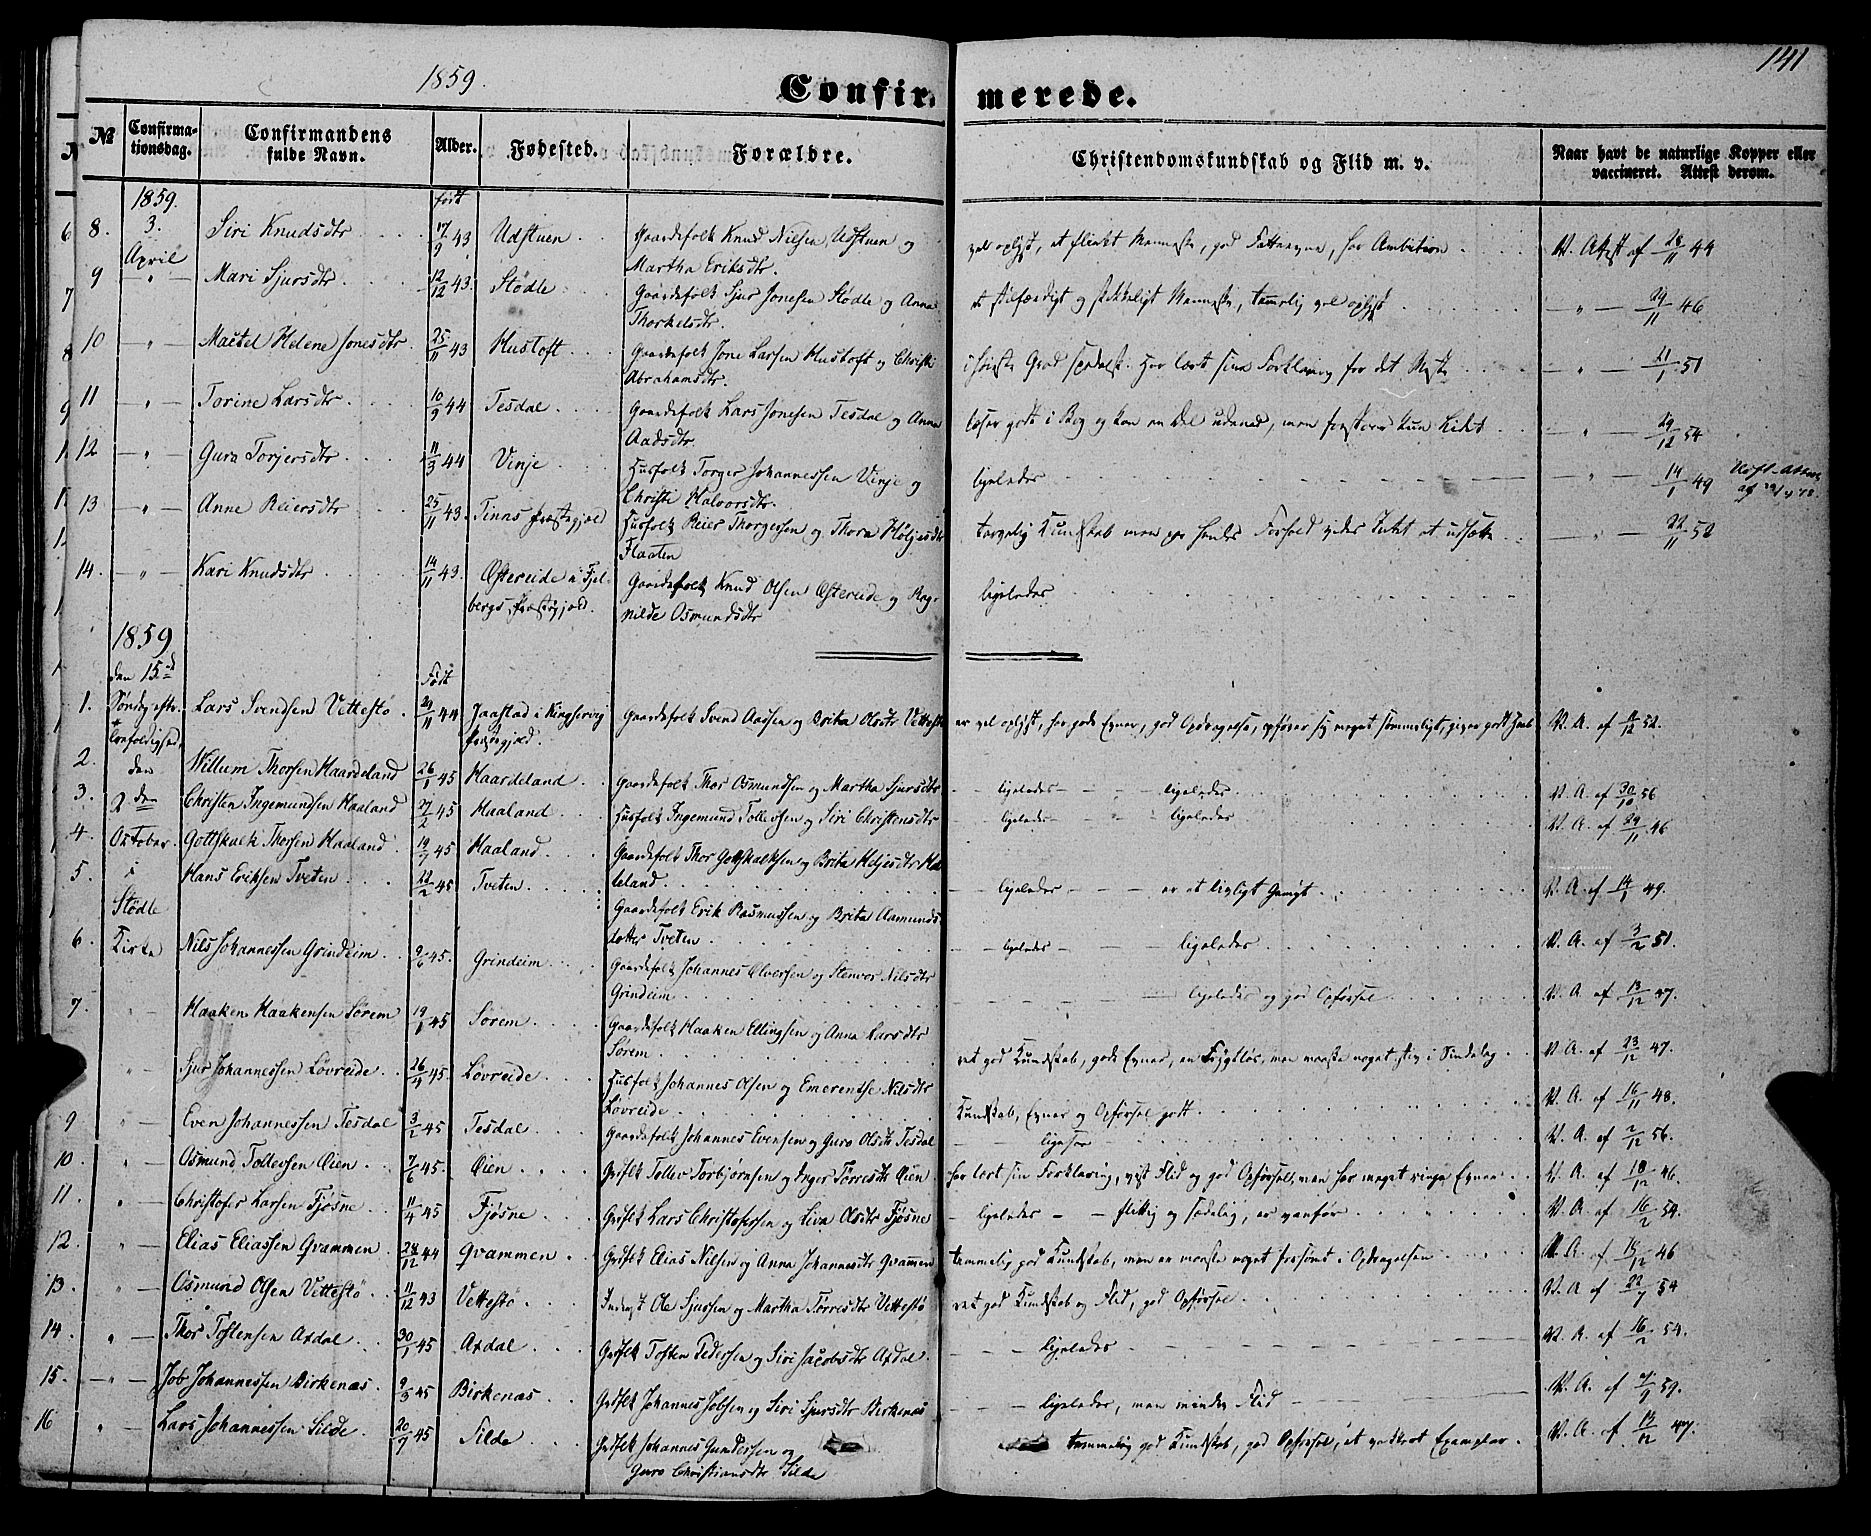 141
1859.
Confirmerede.
№ Confirmationsdag. Confirmandens fulde Navn. Alder. Fødested. Forældre. Christendomskundskab og Flid m. v. Naar havt de naturlige Kopper eller vaccineret. Attest derom.
1859. født
8. 3. April Siri Knudsdtr 17/9 43 Udstuen Gaardefolk Knud Nielsen Udstuen og
Martha Eriksdtr. vel oplyst, et flinkt Menneske, god Fatteevne, har Ambition V. Attest af 28/11 44
9 " Mari Sjursdtr 12/12 43. Stødle Gaardefolk Sjur Jonesen Stødle og Anna
Thorkelsdtr. et stilfærdigt og skikkeligt Menneske, temmelig vel oplyst " 29/11 46
10 " Maetel Helene Jonesdtr. 25/11 43 Hustoft Gaardefolk Jone Larsen Hustoft og Christi
Abrahamsdtr. i høieste Grad spedalsk. Har lært sin Forklaring for det Meste " 21/1 51
11 " Torine Larsdtr. 10/9 44 Tesdal Gaardefolk Lars Jonesen Tesdal og Anna
Aadsdtr. læser godt i Bog og kan en Del udenad, men forstaaer kun Lidet " 29/12 54
12 " Gura Torjersdtr 11/3 44 Vinje Husfolk Torger Johannessen Vinje og
Christi Halvorsdtr. ligeledes " 14/1 49
13 " Anne Reiersdtr 25/11 43. Tinns Præstegjeld Husfolk Reier Thorgersen og Thora Høljesdtr
Flaaten tarvelig Kundskab men paa hendes Forhold vides Intet at udsætte " 22/11 52
14. " Kari Knudsdtr 14/11 43. Østereide i Fjelbergs Præstegjæld. Gaardefolk Knud Olsen Østereide og Ragnilde Osmundsdtr ligeledes
1859
den 15de Født
1. Søndag eftr. Lars Svendsen Vettestø 29/11 44 Jaastad i Kingservig Præstegjæld. Gaardefolk Svend Aadsen og Brita Olsdtr Vettestø er vel oplyst, har gode Evner, god Opdragelse, opfører sig meget sømmeligt, giver godt Haab V. A. af 11/12 52.
Trefoldighed,
2. den Willum Thorsen Haardeland 26/1 45 Haardeland Gaardefolk Thor Osmundsen og Martha Sjursdtr ligeledes ligeledes V. A. af 30/10 56
3. 2den Christen Ingemundsen Haaland 27/2 45 Haaland Husfolk Ingemund Tollevsen og Siri Christensdtr ligeledes ligeledes V. A. af 29/11 46
4. October Gottskalk Thorsen Haaland 19/7 45 Haaland. Gaardefolk Thor Gottskalksen og Brita Heljesdtr Haaeland ligeledes er et livligt Gemyt V. A. af 14/1 49.
5. i Hans Eriksen Tveten 22/2 45 Tveten Gaardefolk Erik Rasmussen og Brita Aamundsdatter Tveten ligeledes ligeledes V. A. af 3/2 51.
Stødle
6. Kirke Nils Johannessen Grindeim 9/6 45. Grindeim Gaardefolk Johannes Elversen og Stenvor Nilsdtr
Grindeim ligeledes og god Opførsel V. A. af 13/12 47.
7. " Haaken Haakensen Sørem 19/1 45 Sørem. Gaardefolk Haaken Ellingsen og Anna Larsdtr
Sørem ret god Kundskab, gode Evner, en Frygtløs, men maaske noget stiv i Sindelag V. A. af 23/12 47.
" Sjur Johannessen Løvreide 26/4 45. Løvreide Husfolk Johannes Olsen og Emerentse Nilsdtr
Løvreide Kundskab, Evner og Opførsel godt V. A. af 16/11 48.
9 " Even Johannessen Tesdal 3/2 45 Tesdal Gaardefolk Johannes Evensen og Guro Olsdtr Tesdal ligesaa V. A. af 2/12 56.
10. " Osmund Tollevsen Øien 7/6 45. Øien Grdflk Tollev Torbjørnsen og Inger Tørresdtr Øien har lært sin Forklaring, vist Flid og god Opførsel, men har meget ringe Evner V. A. af 18/12 46.
11. " Christofer Larsen Fjøsne 11/4 45 Fjøsne Grdflk Lars Christofersen og Liva Olsdtr Fjøsne ligeledes flittig og sædelig, er vanfør V. A. af 16/2 54.
12. " Elias Eliassen Qvammen 24/12 44 Qvammen Grdflk Elias Nilsen og Anna Johannesdtr Qvammen temmelig god Kundskab, men er maaske noget forsømt i Opdragelsen V. A. af 15/12 46
13. " Osmund Olsen Vettestø 11/12 43 Vettestø Inderst Ole Sjursen og Martha Tørresdtr Vettestø ret god Kundskab og Flid, god Opførsel V. A. af 22/7 54
14. " Thor Toftensen Axdal 30/1 45 Axdal Grdflk Toften Pedersen og Siri Jacobsdtr Axdal. ligeledes V. A. af 16/2 54.
15. " Job Johannessen Birkenas 9/3 45 Birkenas Grdflk Johannes Jobsen og Siri Sjursdtr Birkenas ligeledes, men mindre Flid V. A. af 4/9 59.
16 " Lars Johannessen Silde 20/9 45 Silde Grdflk Johannes Gundersen og
Guro Christiansdtr Silde temmelig god Kundskab, god Opførsel, et vakkert Exemplar V. A. af 13/12 47.